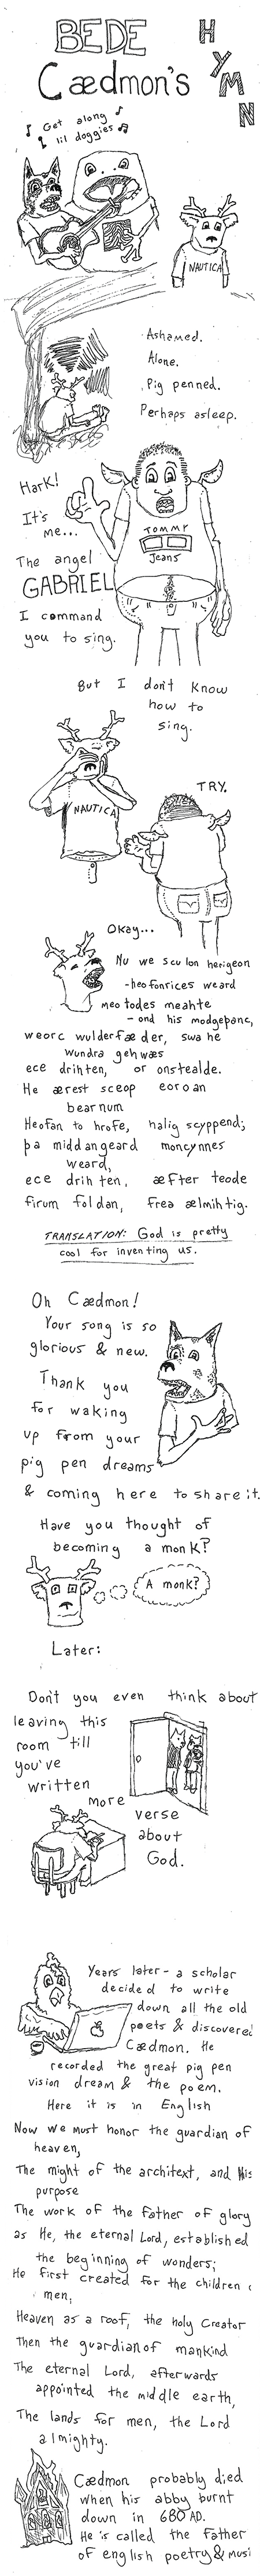 BEDE
HYMN
Cædmon's
Get along
lil doggies
NAUTICA
Ashamed.
Alone.
Pig penned.
Perhaps asleep.
Hark!
It's
me...
The angel
GABRIEL
I command
you to sing.
TOMMY
Jeans
But I don't know
how to
sing.
NAUTICA
TRY.
Okay...
Nu we sculon herigeon
-heofonrices weard
meotodes meahte
- ond his modgeþanc,
weorc wulderfæder, swa he
wundra gehwæs
ece drihten, or onstealde.
He ærest sceop eoroan
bearnum
Heofan to hrofe, halig scyppend;
þa middangeard moncynnes
weard,
ece drihten, æfter teode
firum foldan, frea ælmihtig.
TRANSLATION: God is pretty
cool for inventing us.
Oh Cædmon!
Your song is so
glorious & new.
Thank you
for waking
up from your
pig pen dreams
& coming here to share it.
Have you thought of
becoming a monk?
A monk?
Later:
Don't you even think about
leaving this
room till
you've
written
more
verse
about
God.
Years later - a scholar
decided to write
down all the old
poets & discovered
Cædmon. He
recorded the great pig pen
vision dream & the poem.
Here it is in English
Now we must honor the guardian of
heaven,
The might of the architext, and His
purpose
The work of the father of glory
as He, the eternal Lord, established
the beginning of wonders;
He first created for the children
men,
Heaven as a roof, the holy Creator
Then the guardian of mankind
The eternal Lord, afterwards
appointed the middle earth,
The lands for men, the Lord
almighty.
Cædmon probably died
when his abby burnt
down in 680 AD.
He is called the father
of english poetry & musi